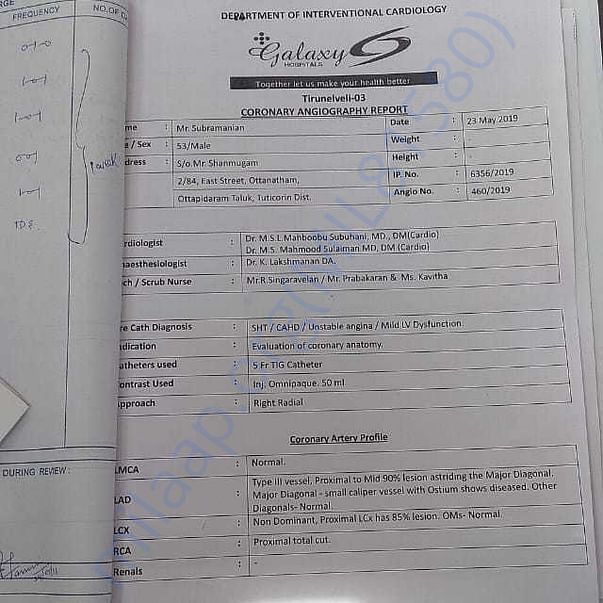 RGE
FREQUENCY
NO.OF
1 week
DURING REVIEW:
DEPARTMENT OF INTERVENTIONAL CARDIOLOGY
Galaxy
HOSPITALS
Together let us make your health better
Tirunelveli-03
CORONARY ANGIOGRAPHY REPORT
me : Mr. Subramanian Date : 23 May 2019
/ Sex : 53/Male Weight :
dress : S/o.Mr. Shanmugam Height : -
2/84, East Street, Ottanatham, IP. No. : 6356/2019
Ottapidaram Taluk, Tuticorin Dist. Angio No. : 460/2019
rdiologist : Dr. M.S.L.Mahboobu Subuhani, MD., DM(Cardio)
Dr. M.S. Mahmood Sulaiman MD, DM (Cardio)
aesthesiologist : Dr. K. Lakshmanan DA.
ch / Scrub Nurse : Mr.R.Singaravelan / Mr. Prabakaran & Ms. Kavitha
re Cath Diagnosis : SHT / CAHD / Unstable angina / Mild LV Dysfunction.
dication : Evaluation of coronary anatomy.
atheters used : 5 Fr TIG Catheter
ontrast Used : Inj. Omnipaque. 50 ml
pproach : Right Radial
Coronary Artery Profile
LMCA : Normal.
LAD : Type III vessel, Proximal to Mid 90% lesion astriding the Major Diagonal.
Major Diagonal - small caliper vessel with Ostium shows diseased. Other
Diagonals- Normal.
LCX : Non Dominant, Proximal LCx has 85% lesion. OMs- Normal.
RCA : Proximal total cut.
Renals : -